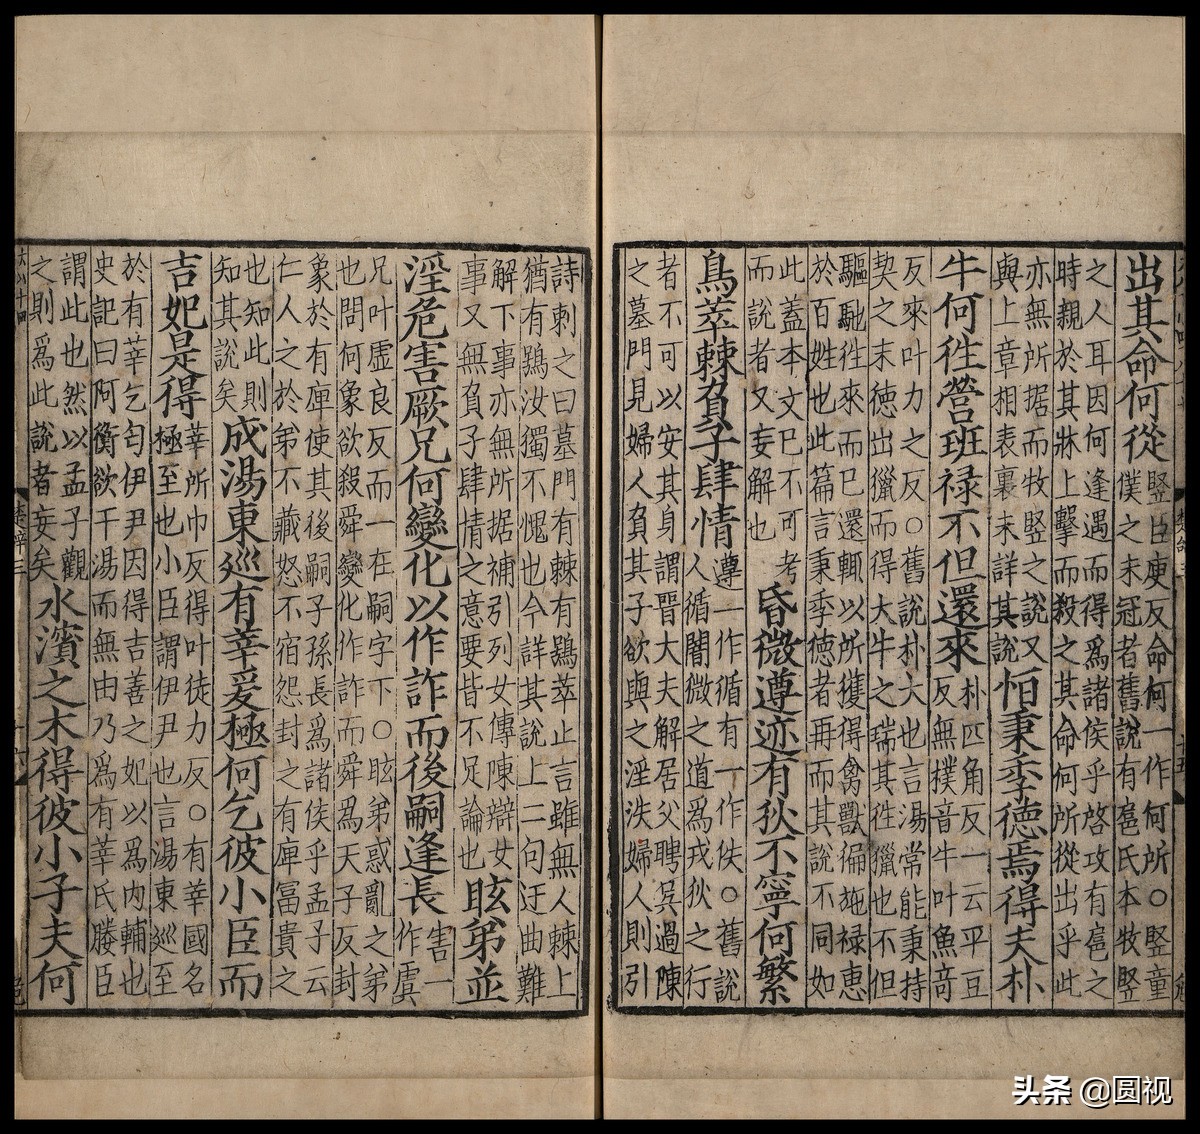 出其命何從
竪臣庾反命何一作何所○竪童
僕之未冠者舊說有扈氏本牧竪
之人耳因何逢遇而得爲諸侯乎啓攻有扈之
時親於其牀上擊而殺之其命何所從出乎此
亦無所据而牧竪之說又
與上章相表裏未詳其說
恒秉季德焉得夫朴
牛何徃營班禄不但還來
朴匹角反一云平豆
反無撲音牛叶魚竒
反來叶力之反○舊說朴大也言湯常能秉持
契之末德出獵而得大牛之瑞其徃獵也不但
驅馳徃來而已還輒以所獲得禽獸徧施禄惠
於百姓也此篇言秉季德者再而其說不同如
此蓋本文已不可考
而說者又妄解也
昏微遵迹有狄不寧何繁
鳥萃棘負子肆情
遵一作循有一作佚○舊說
人循闇微之道爲戎狄之行
者不可以安其身謂晉大夫解居父聘吳過陳
之墓門見婦人負其子欲與之淫泆婦人則引
詩刺之曰墓門有棘有鴞萃止言雖無人棘上
猶有鴞汝獨不愧也今詳其說上二句迂曲難
解下事亦無所据補引列女傳陳辯女
事又無負子肆情之意要皆不足論也
眩弟並
淫危害厥兄何變化以作詐而後嗣逢長
害一
作虞
兄叶虛良反而一在嗣字下○眩弟惑亂之弟
也問何象欲殺舜變化作詐而舜爲天子反封
象於有庳使其後嗣子孫長爲諸侯乎孟子云
仁人之於弟不藏怒不宿怨封之有庳富貴之
也知此則
知其說矣
成湯東巡有莘爰極何乞彼小臣而
吉妃是得
莘所巾反得叶徒力反○有莘國名
極至也小臣謂伊尹也言湯東巡至
於有莘乞匄伊尹因得吉善之妃以爲内輔也
史記曰阿衡欲干湯而無由乃爲有莘氏媵臣
謂此也然以孟子觀
之則爲此說者妄矣
水濱之木得彼小子夫何
头条 @圆视